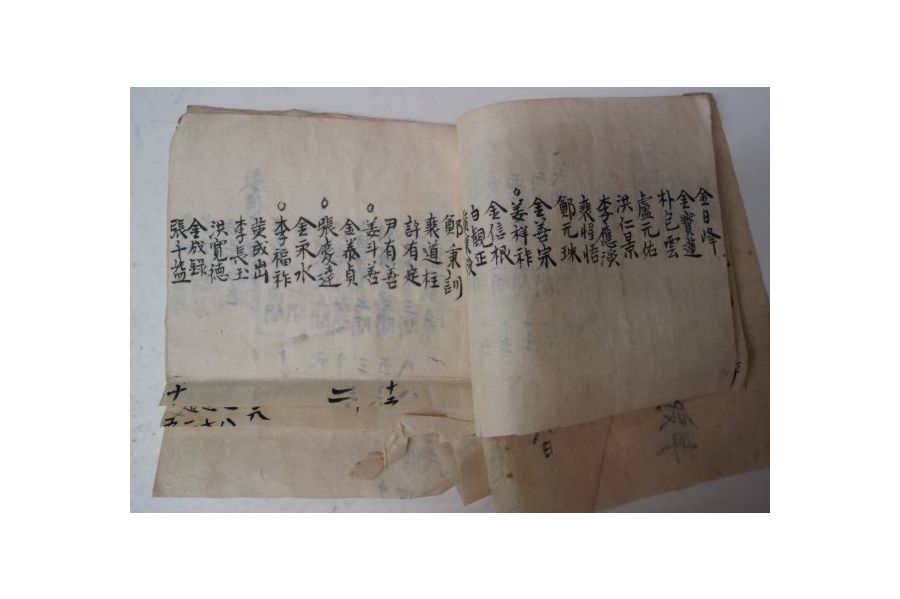 金日峰
金寶蓮
朴包雲
盧元佑
洪仁景
李應漢
裵惺悟
鄭元珠
金善宗
姜祥祚
金信根
白觀正
鄭秉訓
裵道柱
許有定
尹有善
姜斗善
金泰貞
張慶達
金永水
李福祚
裵成出
李長玉
洪寬德
金成録
張子益
十二
二
十
元
一
八
七
一
五
日
成冊